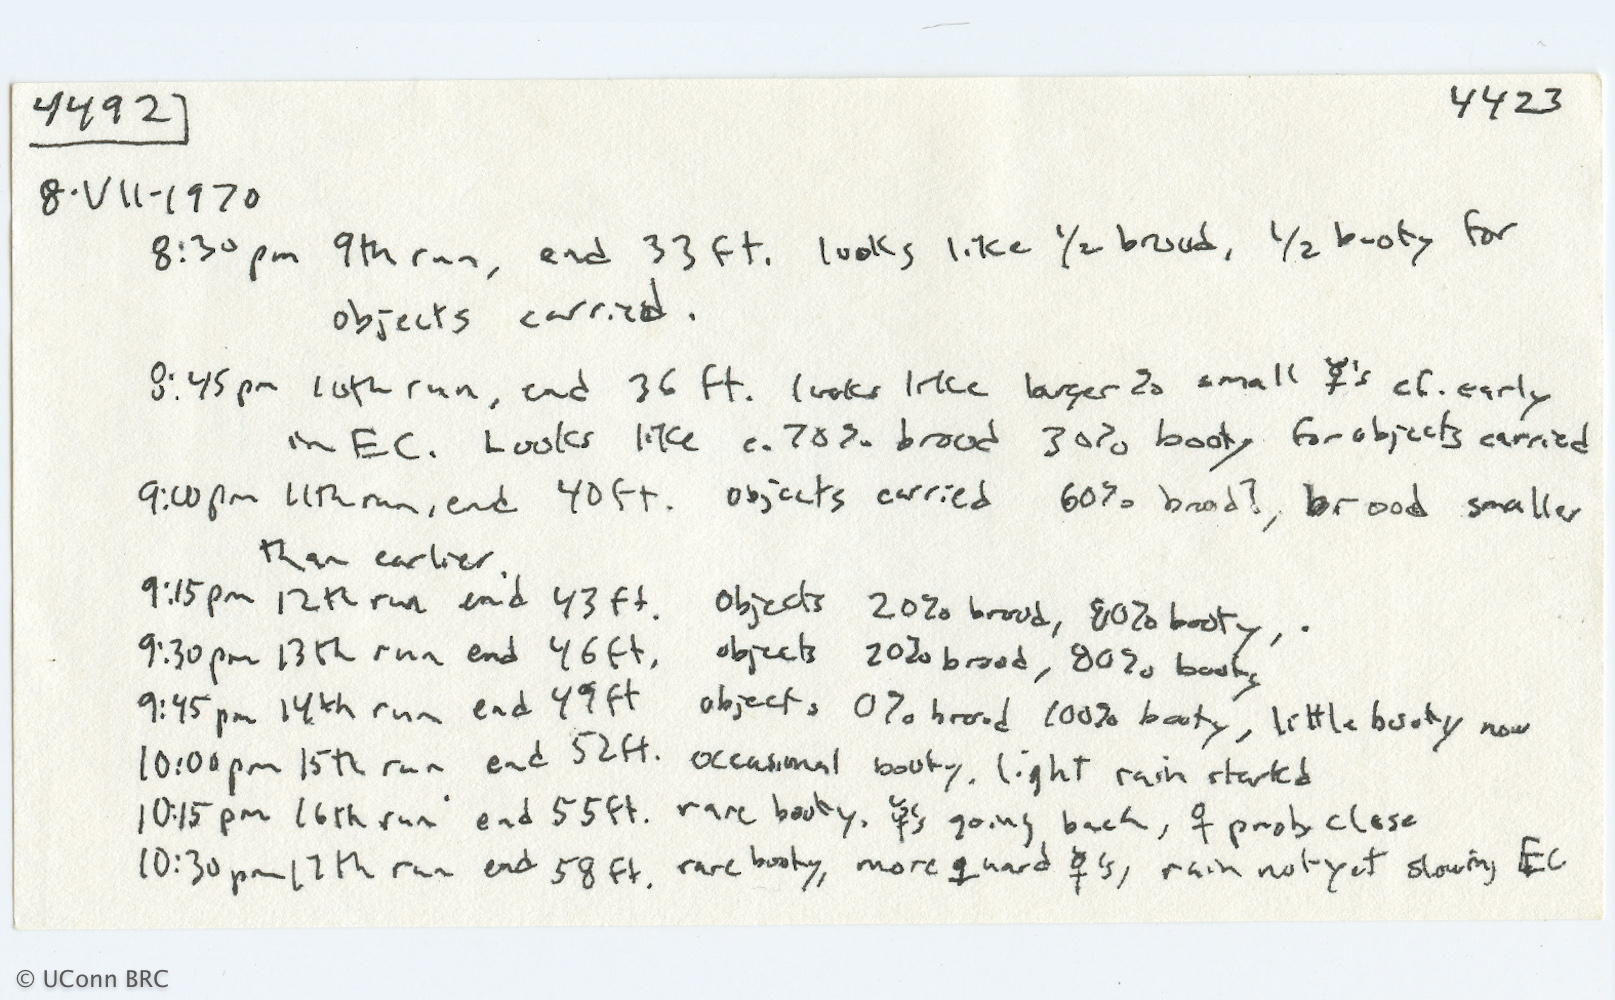 4492 4423
8·VII-1970
8:30pm 9th run, end 33 ft. looks like 1/2 brood, 1/2 booty for
objects carried.
8:45pm 10th run, end 36 ft. looks like larger % small ☿'s cf. early
in EC. Looks like c. 70% brood 30% booty for objects carried
9:00pm 11th run, end 40ft. objects carried 60% brood?, brood smaller
than earlier.
9:15pm 12th run end 43ft. objects 20% brood, 80% booty, .
9:30pm 13th run end 46ft, objects 20% brood, 80% booty
9:45pm 14th run end 49ft objects 0% brood 100% booty, little booty now
10:00pm 15th run end 52ft. occasional booty. light rain started
10:15pm 16th run end 55ft. rare booty. ☿'s going back, ♀ prob close
10:30pm 17th run end 58ft. rare booty, more guard ☿'s, rain not yet slowing EC
© UConn BRC